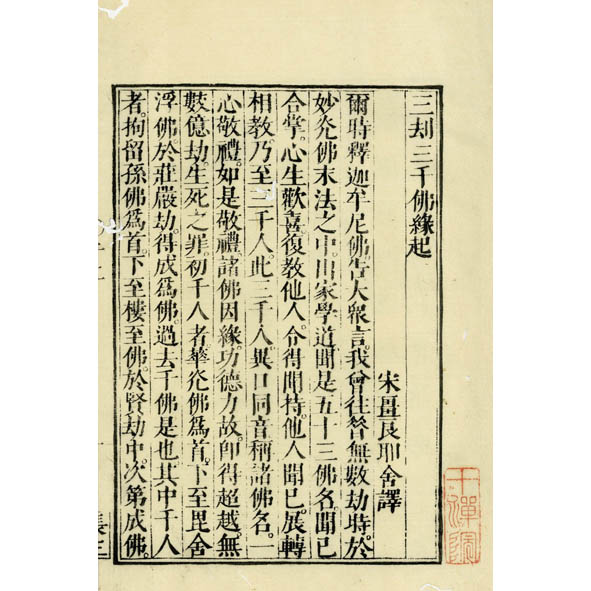 三刦三千佛緣起
宋畺良耶舍譯
爾時釋迦牟尼佛告大衆言我曾往昔無數劫時於
妙光佛末法之中出家學道聞是五十三佛名聞已
合掌心生歡喜復教他人令得聞持他人聞已展轉
相教乃至三千人此三千人異口同音稱諸佛名一
心敬禮如是敬禮諸佛因緣功德力故卽得超越無
數億劫生死之罪初千人者華光佛爲首下至毘舍
浮佛於莊嚴劫得成爲佛過去千佛是也其中千人
者拘留孫佛爲首下至樓至佛於賢劫中次第成佛